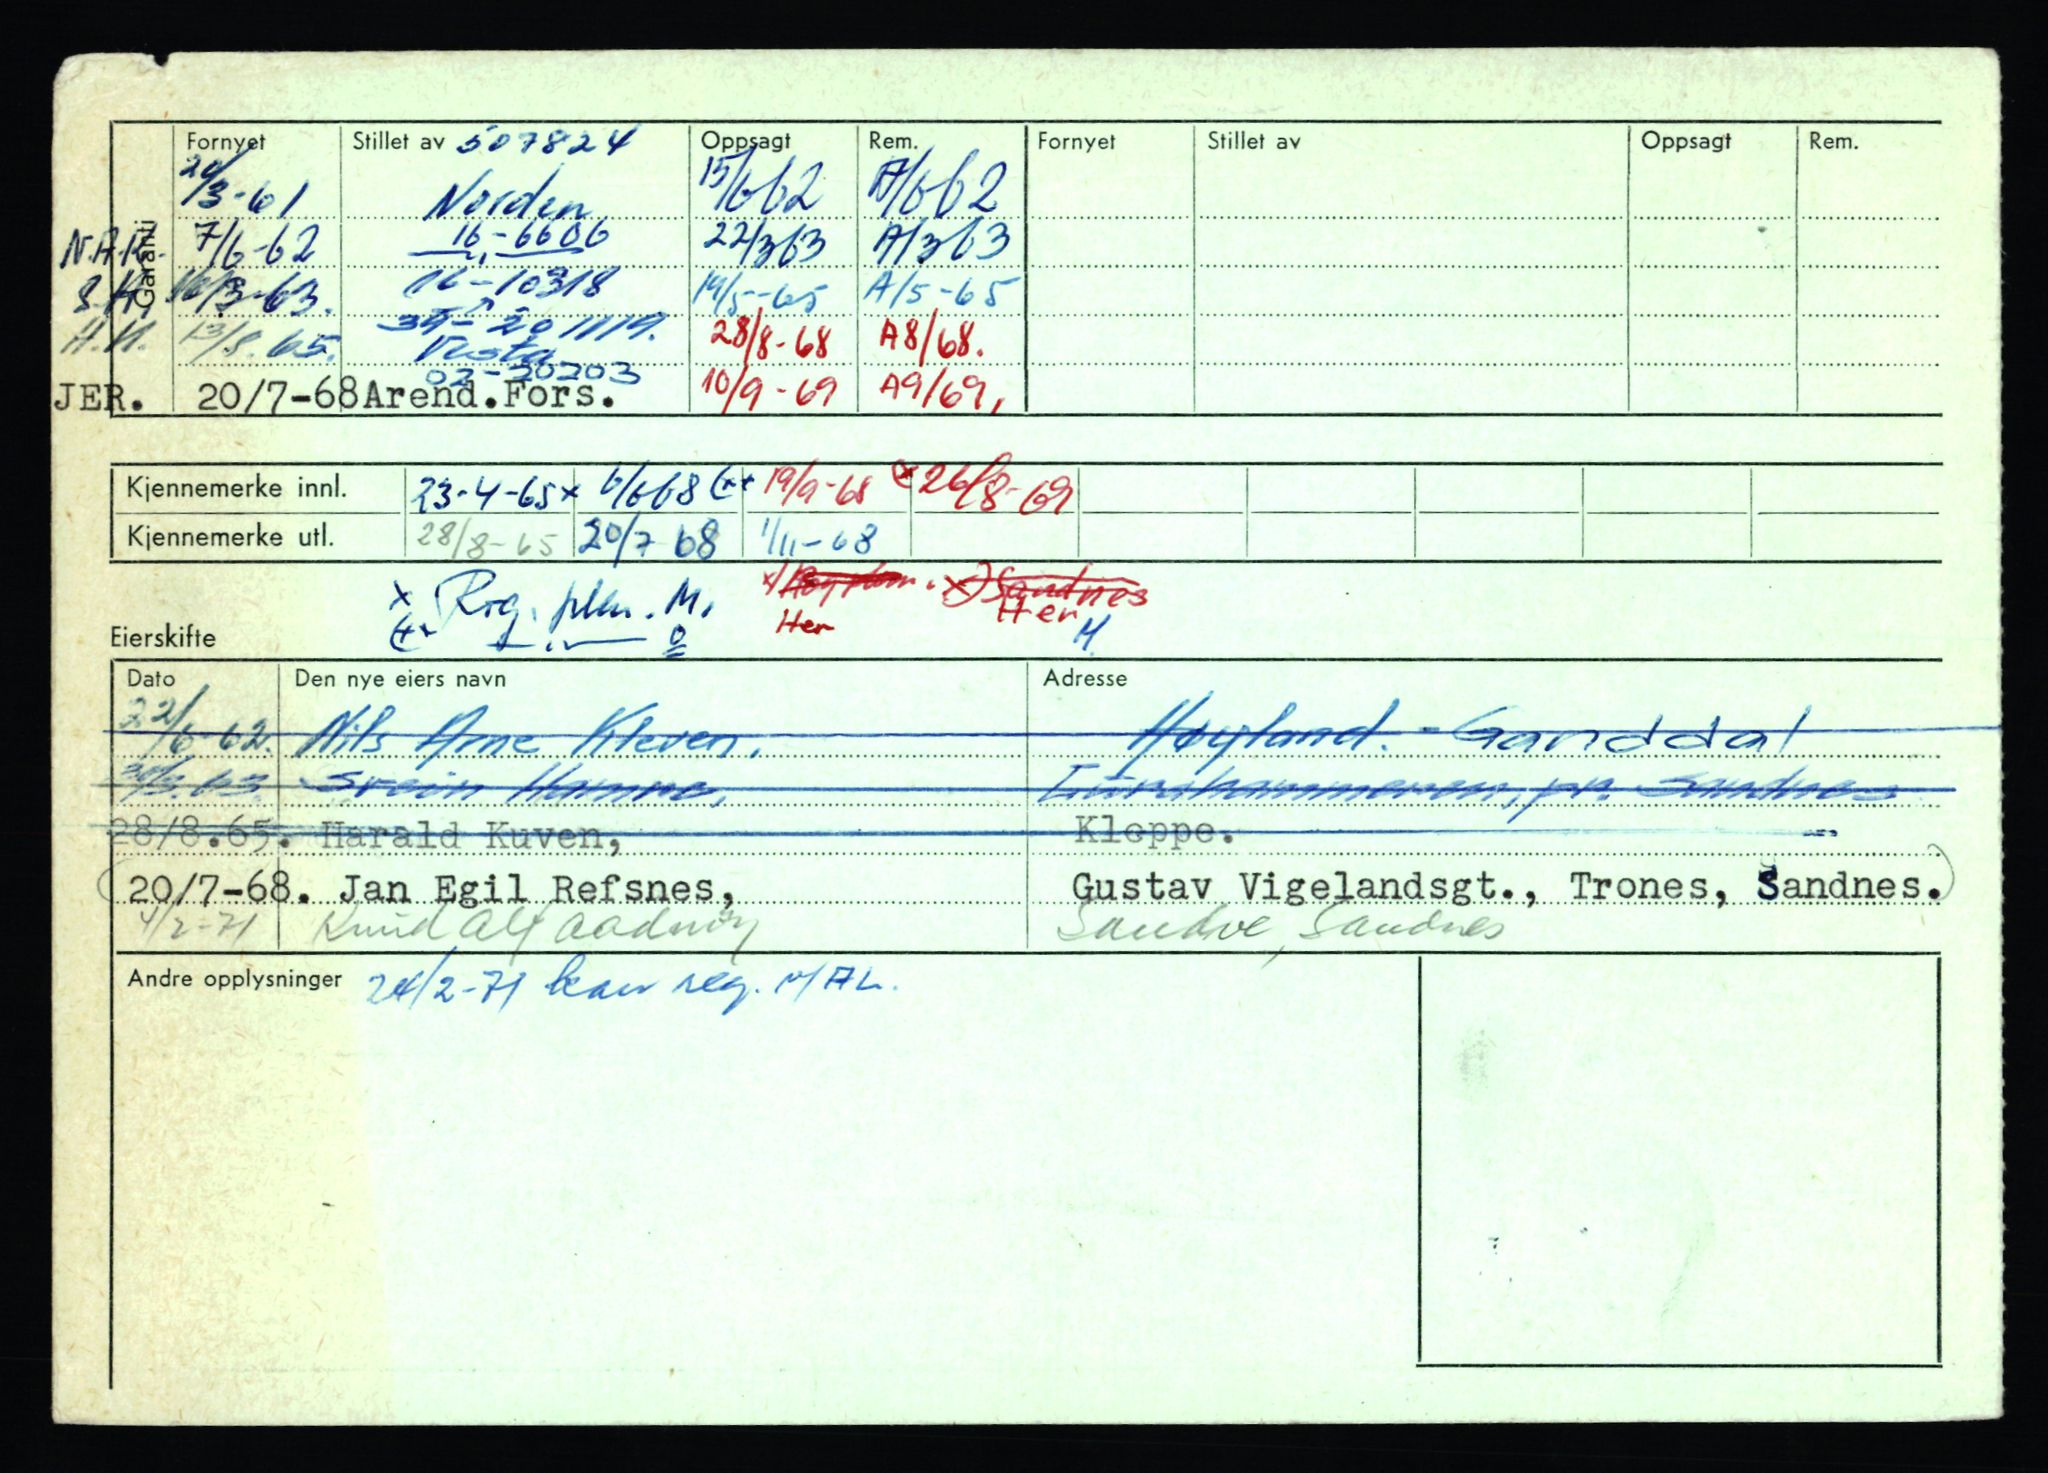 Fornyet Stillet av 507824 Oppsagt Rem. Fornyet Stillet av Oppsagt Rem.
Garanti
/3-61 Norden 15/6 62 A/6 62
N.A.K. 7/6-62 16-6606 22/3 63 A/3 63
S.H. /3-63. 16-10318 14/5-65 A/5-65
H.K. 13/8.65. 39-201119. 28/8-68 A8/68.
Vesta
02-20203
JER. 20/7-68 Arend.Fors. 10/9-69 A9/69,
Kjennemerke innl. 23-4-65 x 6/6 68 (x 19/9-68 (x 26/8-69
Kjennemerke utl. 28/8-65 20/7 68 1/11-68
x Reg. pln. M. x) x) Sandnes
Her Her M.
Eierskifte
Dato Den nye eiers navn Adresse
22/6-62. Nils Arne Kleven, Høyland. - Ganddal
Svein Hamre, pr. Sandnes
28/8.65. Harald Kuven, Kleppe.
20/7-68. Jan Egil Refsnes, Gustav Vigelandsgt., Trones, Sandnes.
4/2-71 Knud Alf Sandve, Sandnes
Andre opplysninger 24/2-71 reg.